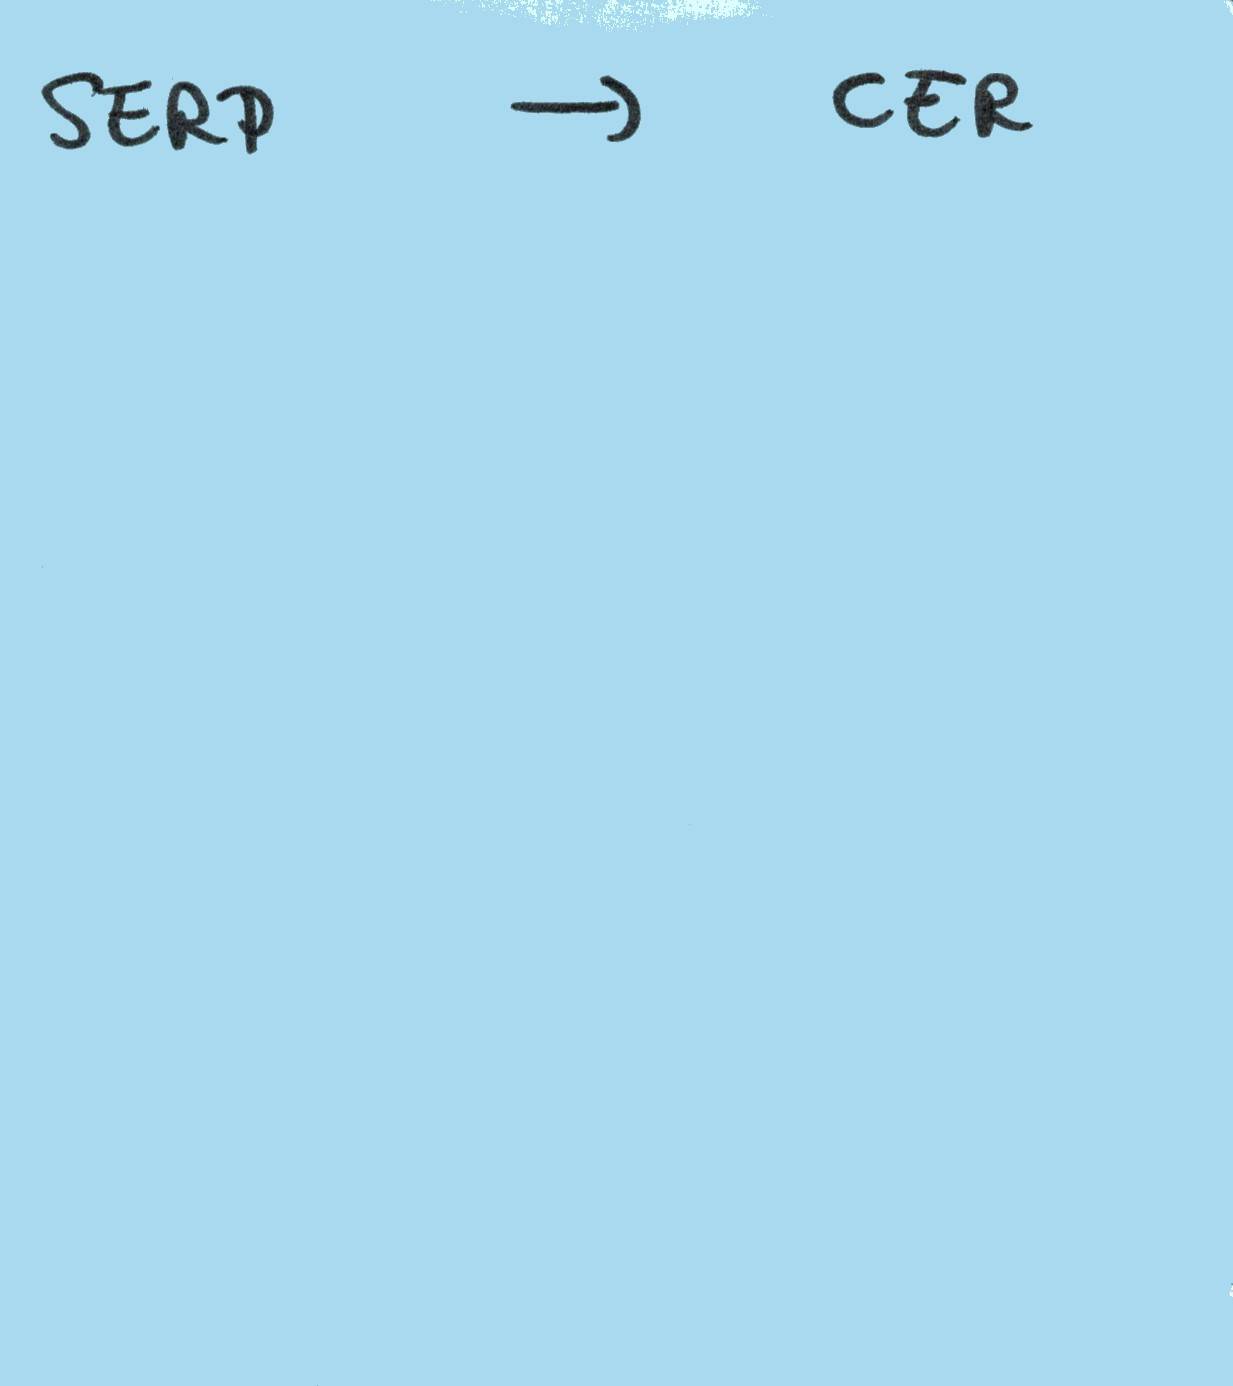 SERP → CER